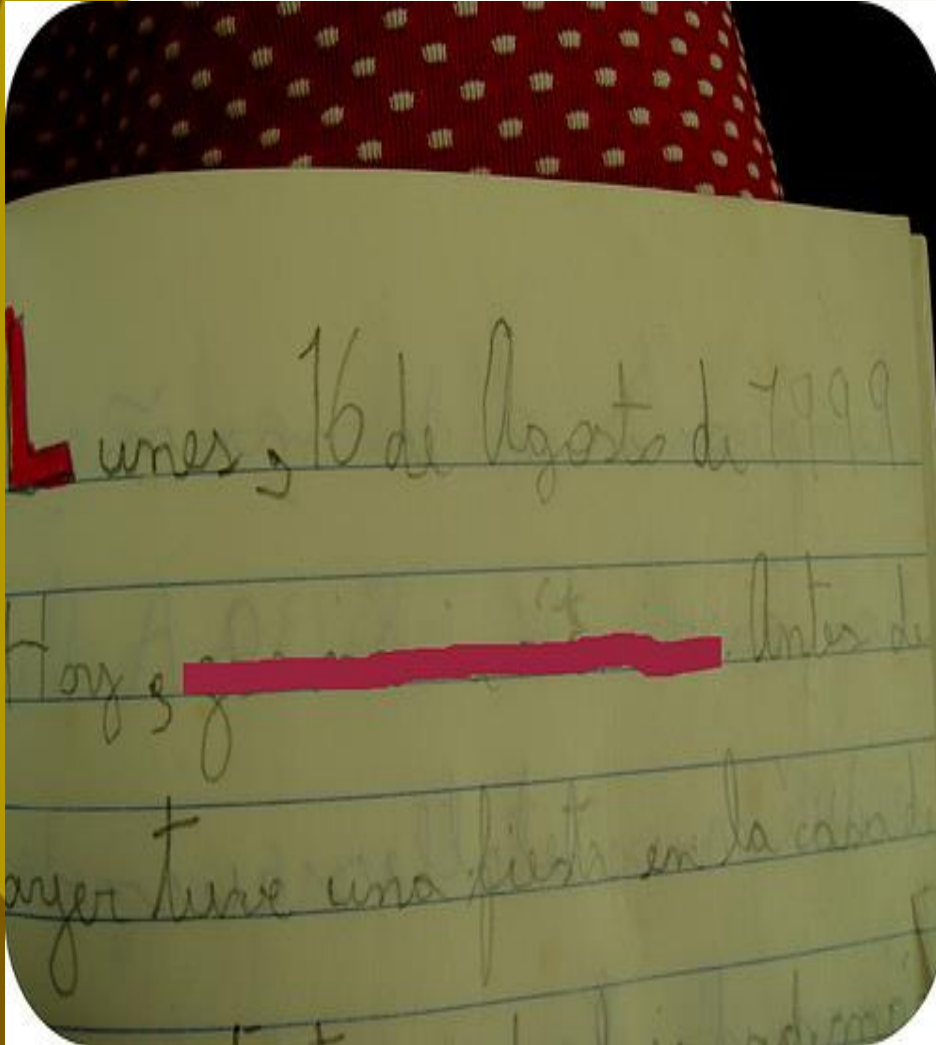 Lunes, 16 de Agosto de 1999
Hoy, Antes de
ayer tuve una fiesta en la casa de